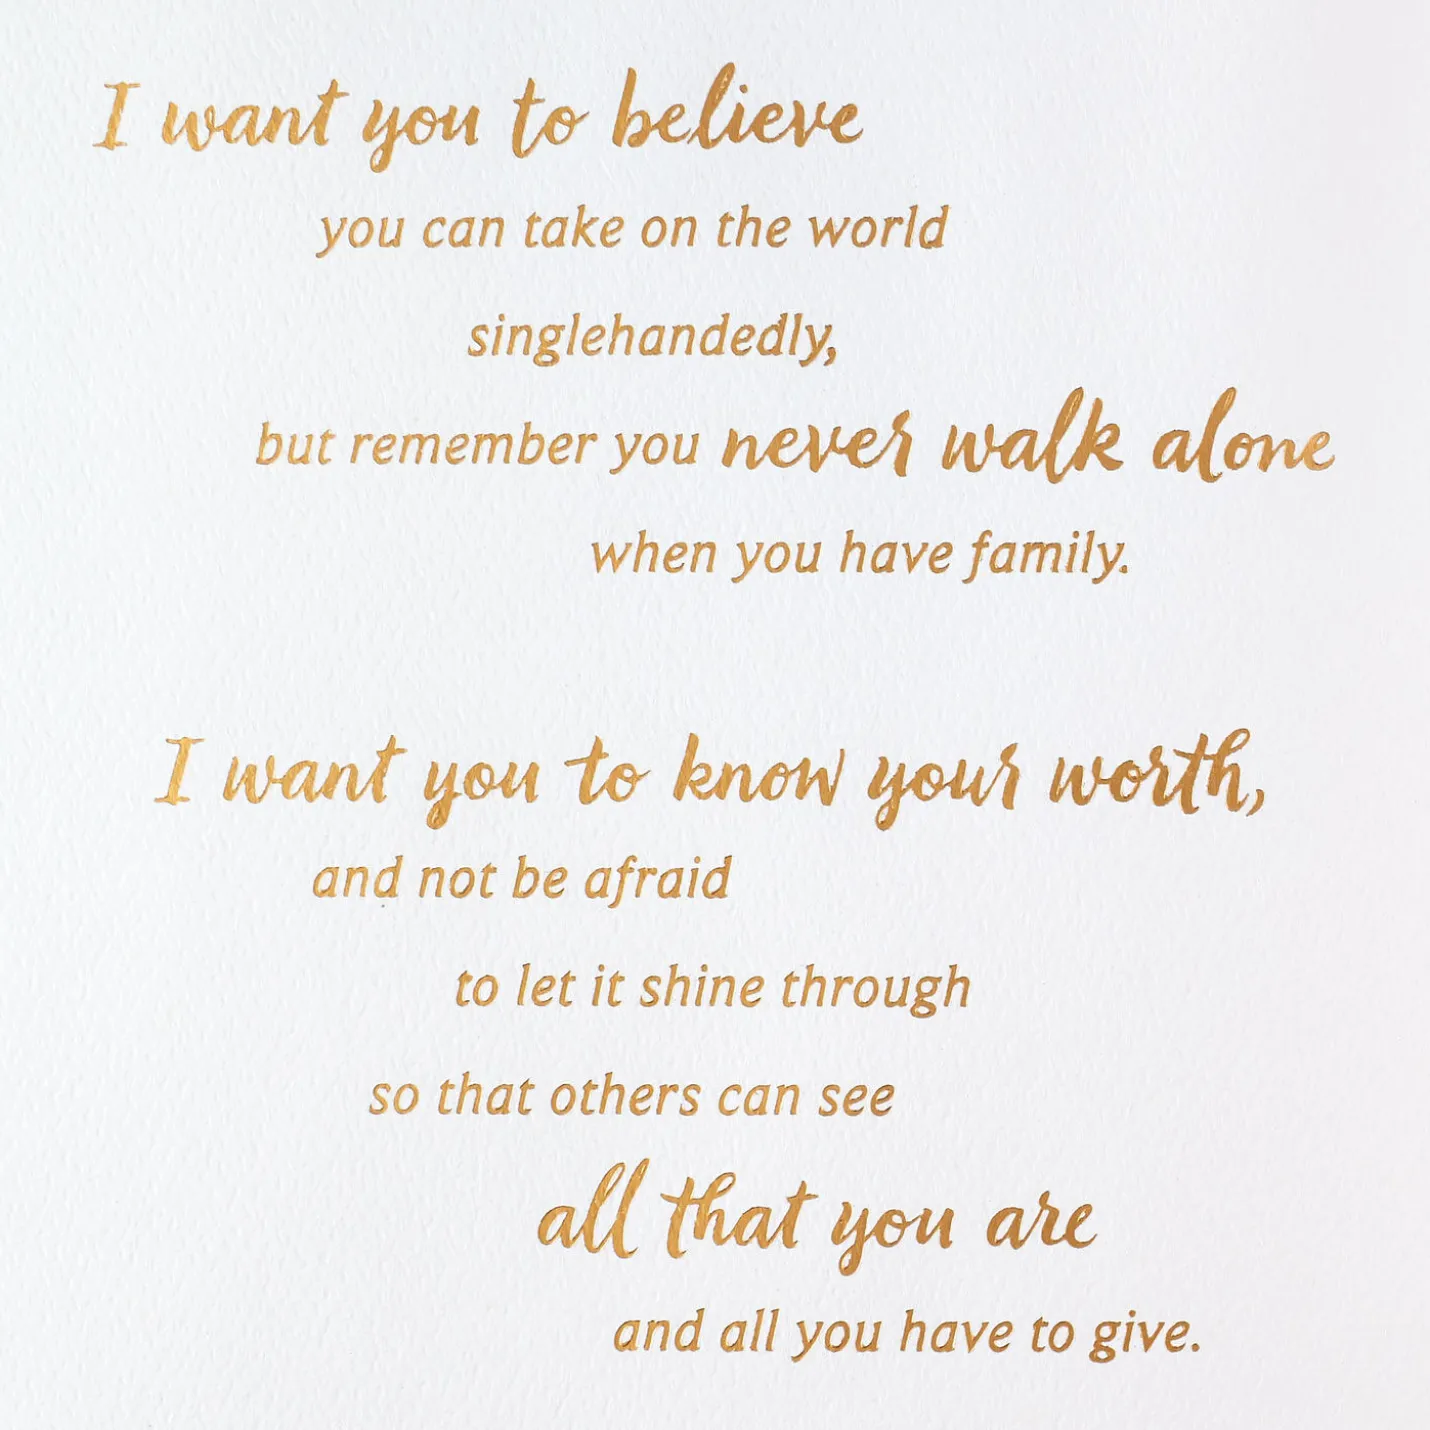 I want you to believe
you can take on the world
singlehandedly,
but remember you never walk alone
when you have family.
I want you to know your worth,
and not be afraid
to let it shine through
so that others can see
all that you are
and all you have to give.